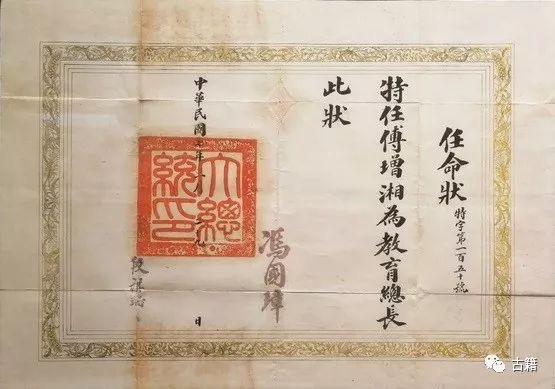 任命狀
特字第一百五十號
特任傅增湘為教育總長
此狀
馮國璋
中華民國七年
日
大總統印
段祺瑞
古籍